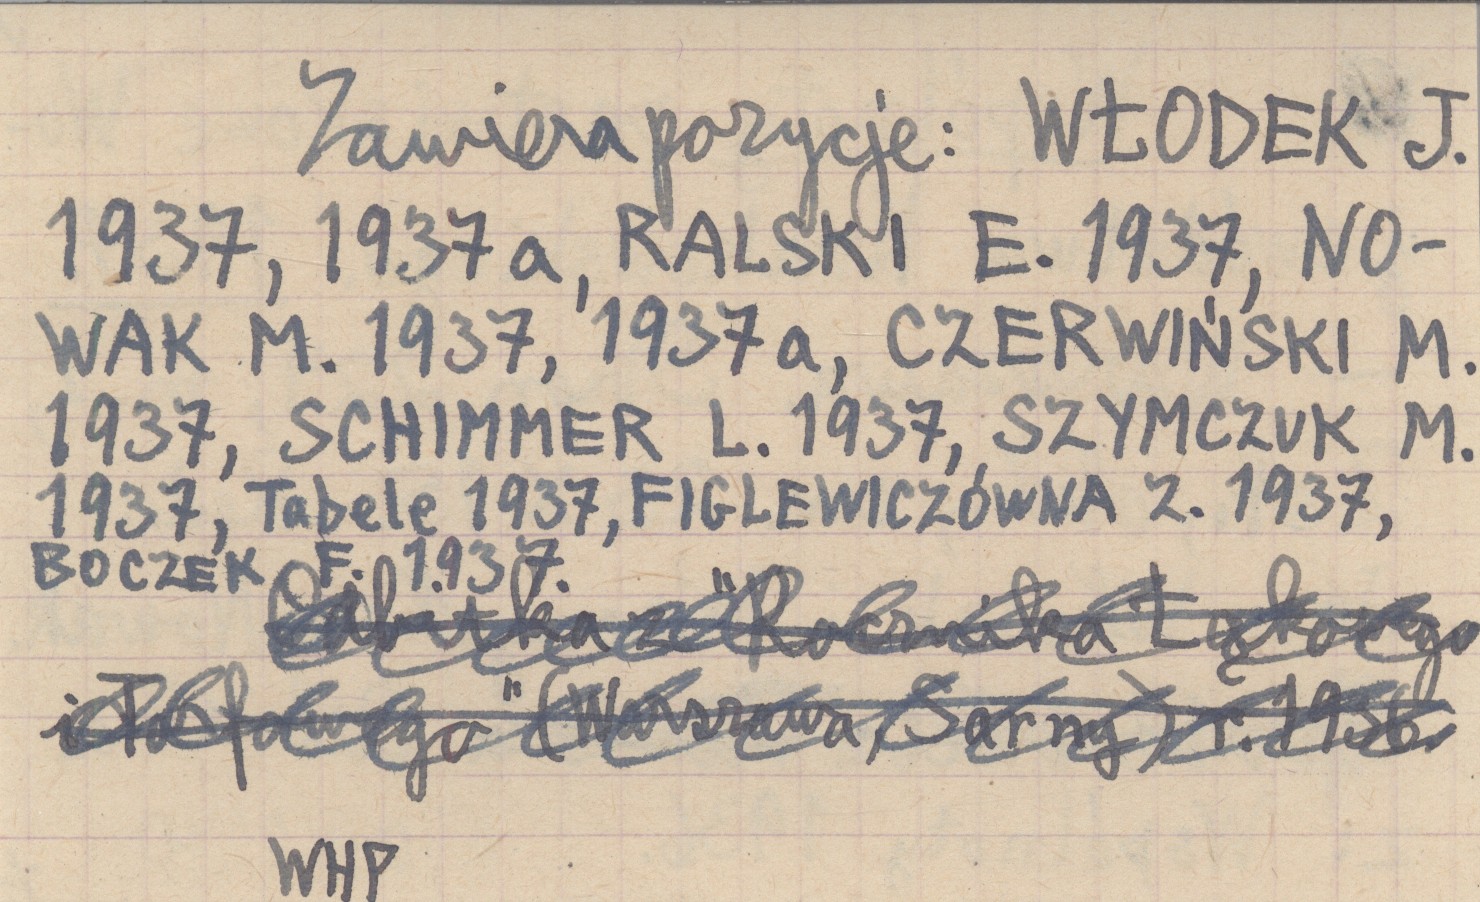 Zawiera pozycje: WŁODEK J.
1937, 1937a, RALSKI E. 1937, NO-
WAK M. 1937, 1937a, CZERWIŃSKI M.
1937, SCHIMMER L. 1937, SZYMCZUK M.
1937, Tabele 1937, FIGLEWICZÓWNA Z. 1937,
BOCZEK F. 1937.
Odbitka z "Rocznika Łąkowego
i Torfowego" (Warszawa, Sarny) r. 1936.
WHP